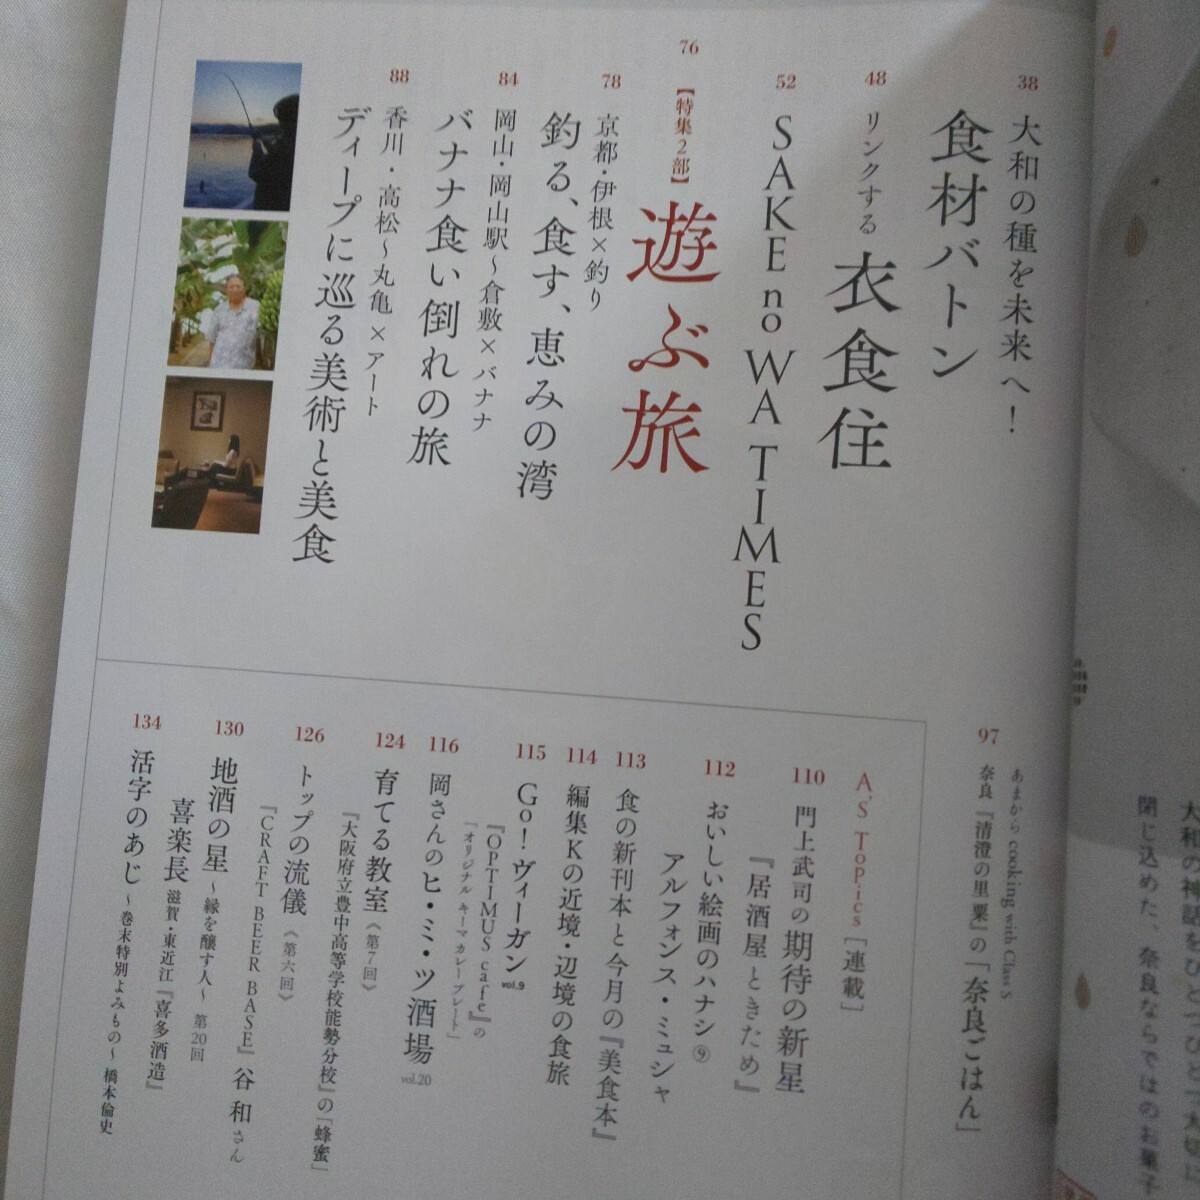 38
大和の種を未来へ！
食材バトン
48
リンクする 衣食住
52
SAKE no WA TIMES
76
【特集2部】 遊ぶ旅
78
京都・伊根×釣り
釣る、食す、恵みの湾
84
岡山・岡山駅～倉敷×バナナ
バナナ食い倒れの旅
88
香川・高松～丸亀×アート
ディープに巡る美術と美食
97
あまから cooking with Class S
奈良『清澄の里 粟』の「奈良ごはん」
A'S TOPics［連載］
110
門上武司の期待の新星
『居酒屋 ときため』
112
おいしい絵画のハナシ⑨
アルフォンス・ミュシャ
113
食の新刊本と今月の『美食本』
114
編集Kの近境・辺境の食旅
115
Go! ヴィーガン vol.9
『OPTIMUS cafe』の
「オリジナル キーマカレープレート」
116
岡さんのヒ・ミ・ツ酒場 vol.20
124
育てる教室《第7回》
『大阪府立豊中高等学校能勢分校』の「蜂蜜」
126
トップの流儀《第六回》
『CRAFT BEER BASE』谷 和さん
130
地酒の星 ～縁を醸す人～ 第20回
喜楽長 滋賀・東近江『喜多酒造』
134
活字のあじ ～巻末特別よみもの～ 橋本倫史
閉じ込めた、奈良ならではのお菓子